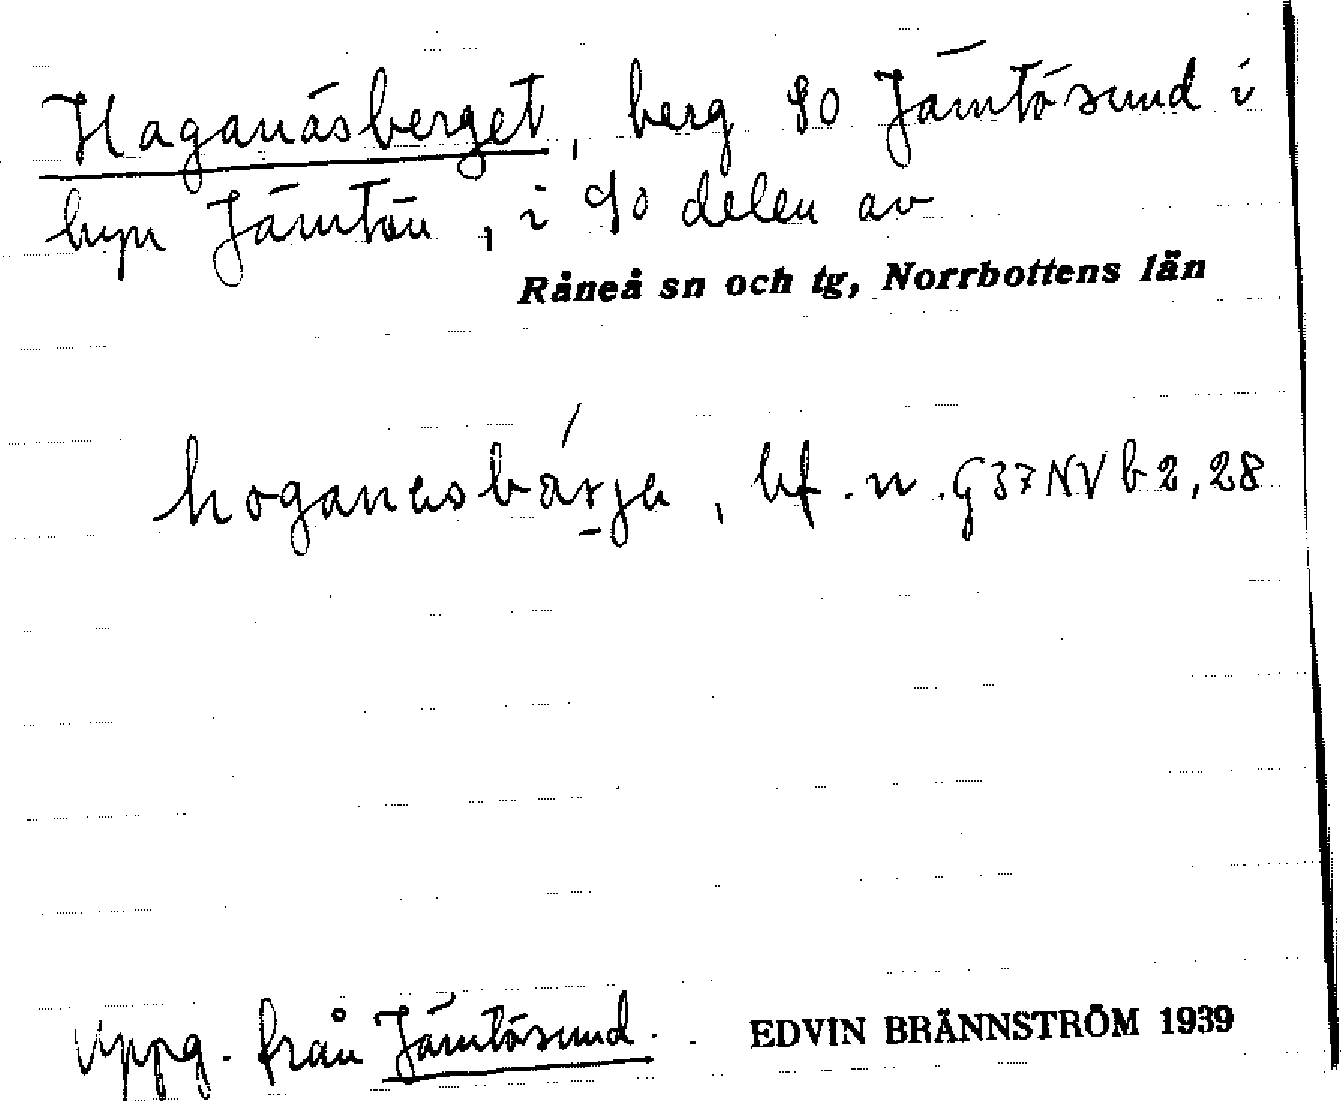 Haganäsberget, berg SO Jämtösund i
byn Jämtön, i SO delen av
Råneå sn och tg, Norrbottens län
hoganasbárja, bf. n. G37NV b2,28
Uppg. från Jämtösund.
EDVIN BRÄNNSTRÖM 1939